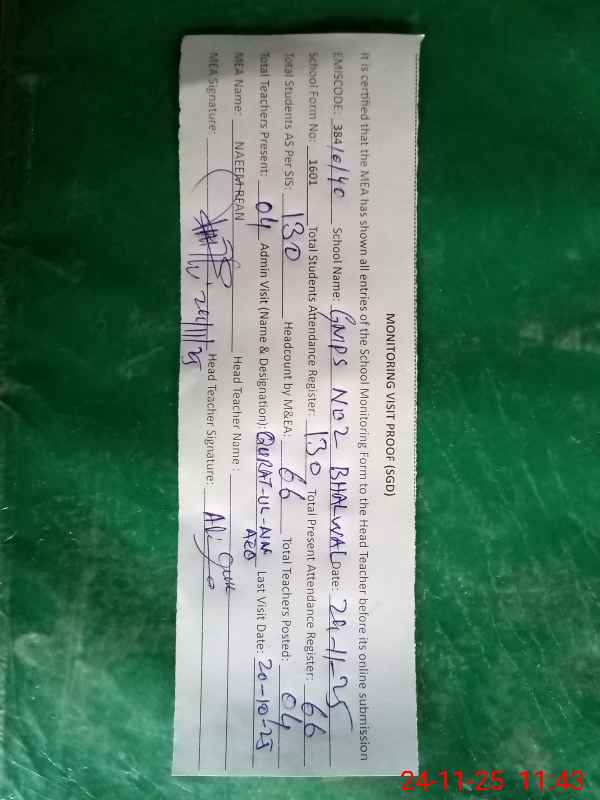 MONITORING VISIT PROOF (SGD)
It is certified that the MEA has shown all entries of the School Monitoring Form to the Head Teacher before its online submission
EMISCODE: 384/0/40 School Name: GMPS NO2 BHALWAL Date: 24-11-25
School Form No: 1601 Total Students Attendance Register: 130 Total Present Attendance Register: 66
Total Students AS Per SIS: 130 Headcount by M&EA: 66 Total Teachers Posted: 04
Total Teachers Present: 04 Admin Visit (Name & Designation): QURAT-UL-AIN AEO Last Visit Date: 20-10-25
MEA Name: NAEEM Head Teacher Name:
MEA Signature: 24/11/25 Head Teacher Signature:
24-11-25 11:43